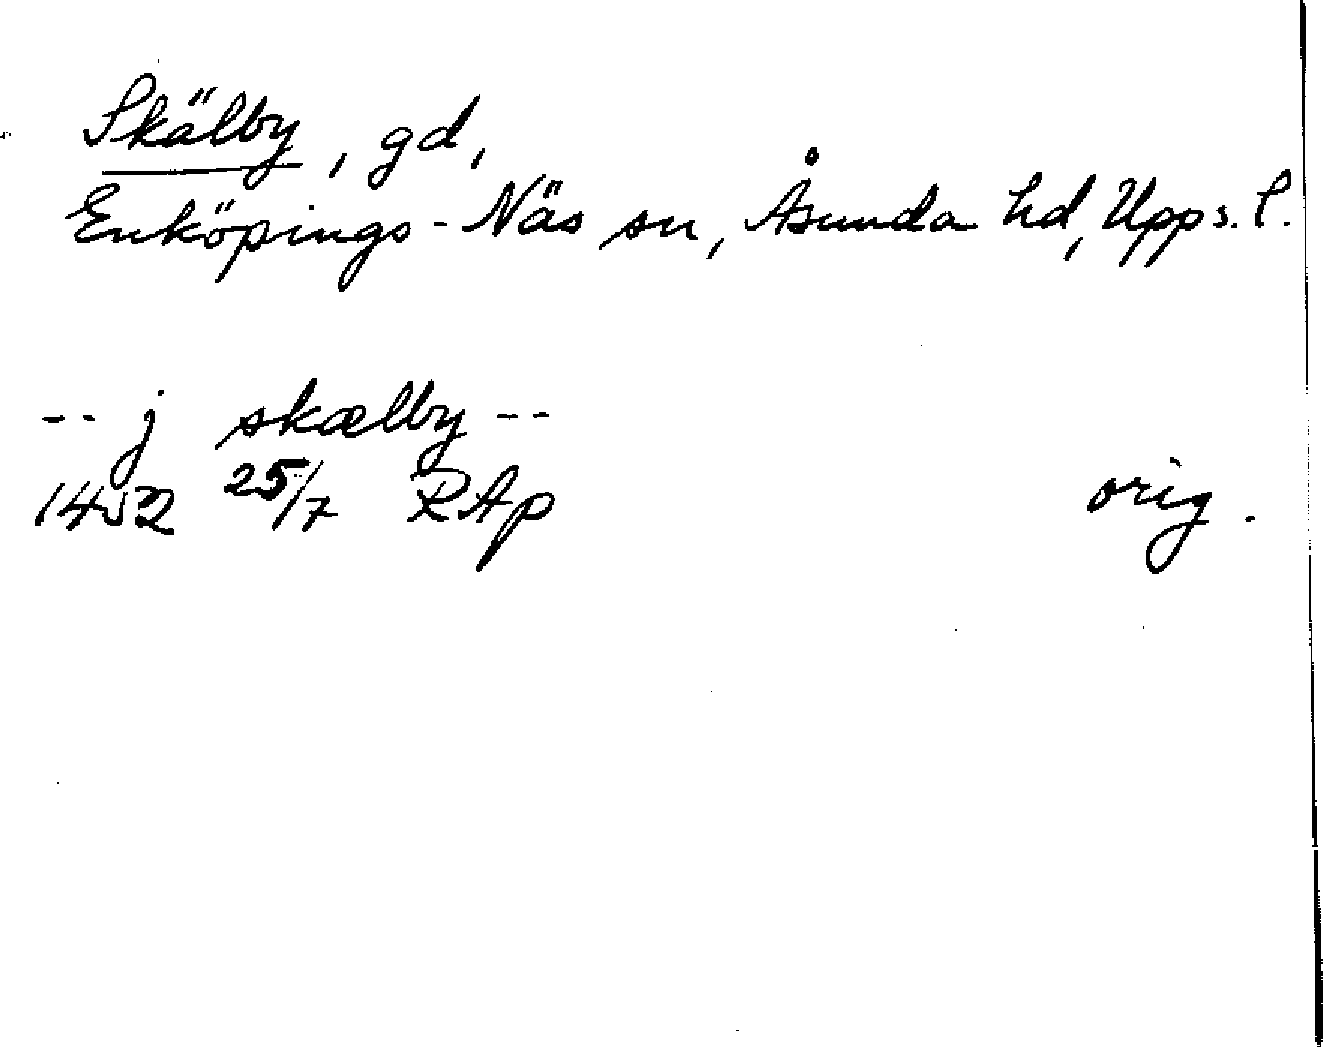 Skälby, gd,
Enköpings-Näs sn, Åsunda hd, Upps. l.
-- j skælby --
1452 25/7 RAp orig.